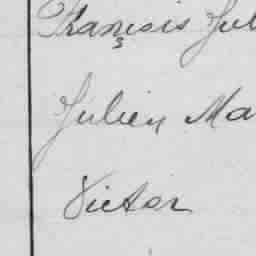 François Jul
Julien Ma
Victor